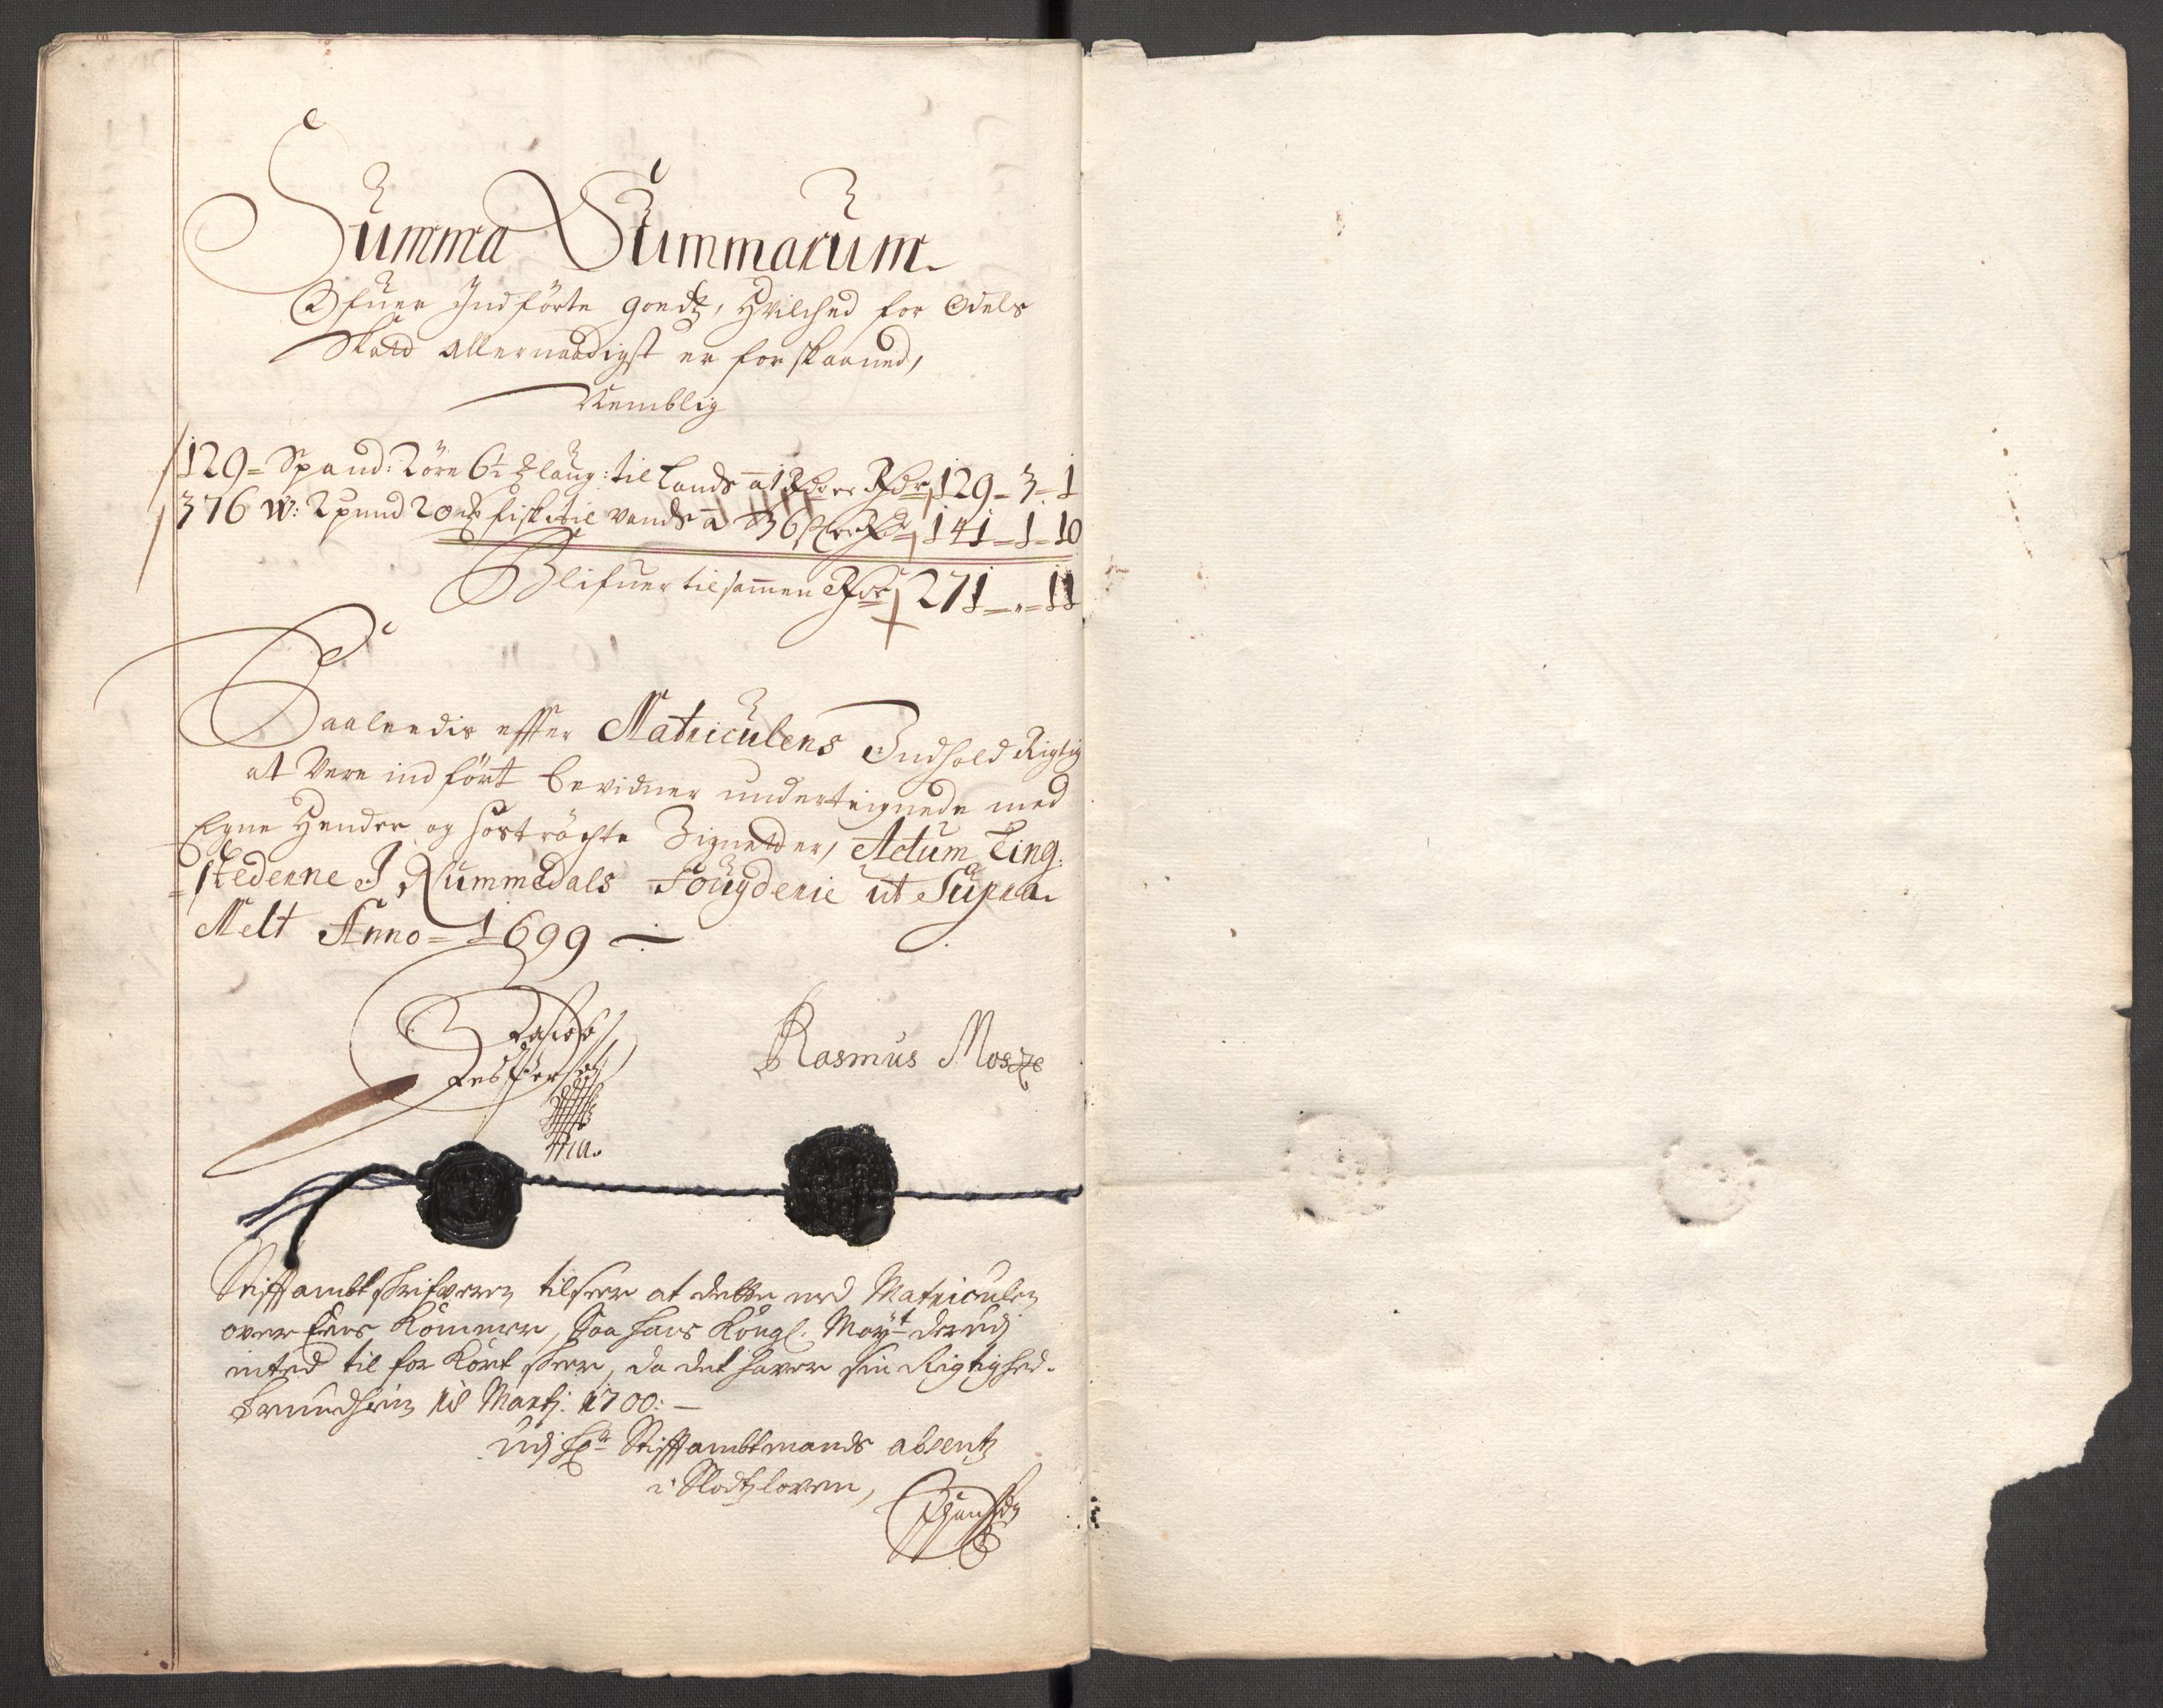 Summa Summarum
Ofuer Indførte goedtz, Hvilched for Odels
Skatt allernaadigst er forskaaned,
Nemblig
129 = Spand: 2 øre 6½ laug: til Lands a 1 Rdr er Rdr 129 = 3 = 1
376 W: 2 pund fisk til vands a 36 s er Rdr 141 = 1 = 10
Blifuer tilsamen Rdr 271 = " = 11
Saaleedis effter Matriculens Indhold Rigtig
at Vere indført bevidner underteignede med
Egne Hender og hostrøchte Zignetter, Actum Ting-
stederne I Nummedals Fougderie ut Supra.
Melt Anno = 1699
Rasmus Mosze
mia.
Stifftambtskrifveren tilseer at dette med Matriculen
over Eens Kommer, saa hans Kongl. Mayt derudj
inted til for Kort skeer, da det haver sin Rigtighed.
Trundheim Martj: 1700:
Udj Hr Stifftambtmands absentz
i Slodtzloven,